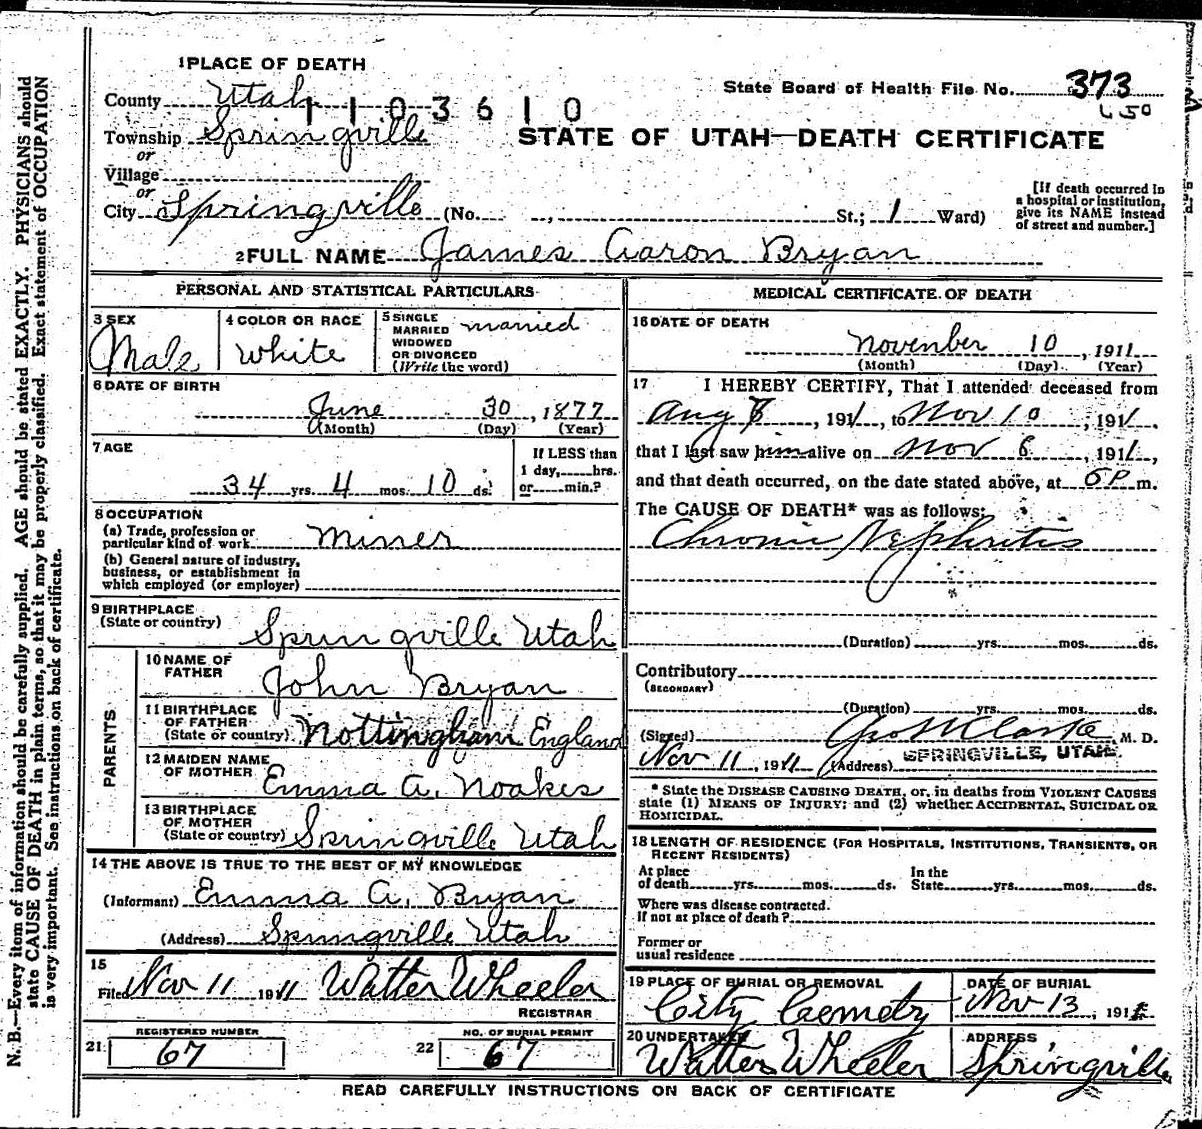 1 PLACE OF DEATH
State Board of Health File No. 373
650
County Utah
1103610
Township Springville
STATE OF UTAH—DEATH CERTIFICATE
or
Village
or
City Springville (No. , St.; 1 Ward)
[If death occurred in
a hospital or institution,
give its NAME instead
of street and number.]
2 FULL NAME James Aaron Bryan
PERSONAL AND STATISTICAL PARTICULARS
3 SEX
Male
4 COLOR OR RACE
White
5 SINGLE
MARRIED
WIDOWED
OR DIVORCED
(Write the word)
married
6 DATE OF BIRTH
June 30, 1877
(Month) (Day) (Year)
7 AGE
34 yrs. 4 mos. 10 ds.
If LESS than
1 day, hrs.
or min.?
8 OCCUPATION
(a) Trade, profession or
particular kind of work Miner
(b) General nature of industry,
business, or establishment in
which employed (or employer)
9 BIRTHPLACE
(State or country) Springville Utah
PARENTS
10 NAME OF
FATHER John Bryan
11 BIRTHPLACE
OF FATHER
(State or country) Nottingham England
12 MAIDEN NAME
OF MOTHER Emma A. Noakes
13 BIRTHPLACE
OF MOTHER
(State or country) Springville Utah
14 THE ABOVE IS TRUE TO THE BEST OF MY KNOWLEDGE
(Informant) Emma A. Bryan
(Address) Springville Utah
15
Filed Nov 11 1911 Walter Wheeler
REGISTRAR
REGISTERED NUMBER
21 67
NO. OF BURIAL PERMIT
22 67
MEDICAL CERTIFICATE OF DEATH
16 DATE OF DEATH
November 10, 1911
(Month) (Day) (Year)
17 I HEREBY CERTIFY, That I attended deceased from
Aug , 1911, to Nov 10, 1911.
that I last saw him alive on Nov 8, 1911,
and that death occurred, on the date stated above, at P m.
The CAUSE OF DEATH* was as follows:
Chronic Nephritis
(Duration) yrs. mos. ds.
Contributory
(SECONDARY)
(Duration) yrs. mos. ds.
(Signed) Geo Clarke M. D.
Nov 11, 1911 (Address) SPRINGVILLE, UTAH.
* State the DISEASE CAUSING DEATH, or, in deaths from VIOLENT CAUSES
state (1) MEANS OF INJURY; and (2) whether ACCIDENTAL, SUICIDAL OR
HOMICIDAL.
18 LENGTH OF RESIDENCE (FOR HOSPITALS, INSTITUTIONS, TRANSIENTS, OR
RECENT RESIDENTS)
At place
of death yrs. mos. ds.
In the
State yrs. mos. ds.
Where was disease contracted.
if not at place of death?
Former or
usual residence
19 PLACE OF BURIAL OR REMOVAL
City Cemetry
DATE OF BURIAL
Nov 13, 191
20 UNDERTAKER
Walter Wheeler
ADDRESS
Springville
READ CAREFULLY INSTRUCTIONS ON BACK OF CERTIFICATE
N. B.—Every item of information should be carefully supplied. AGE should be stated EXACTLY. PHYSICIANS should
state CAUSE OF DEATH in plain terms, so that it may be properly classified. Exact statement of OCCUPATION
is very important. See instructions on back of certificate.